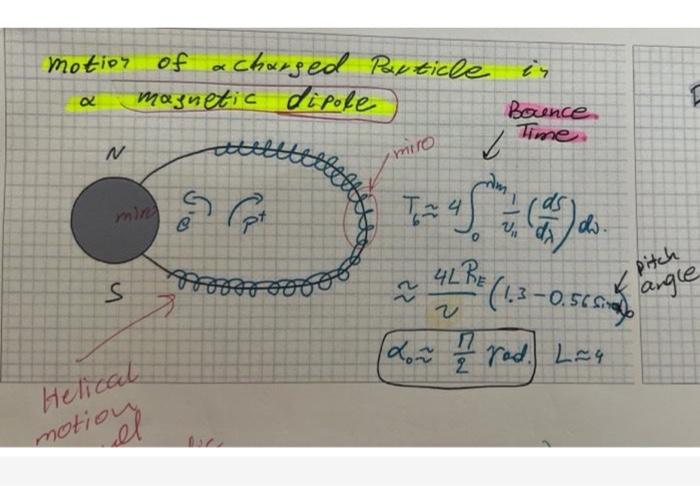 motion of a charged Particle in
a magnetic dipole
Bounce
Time
N
miro
min
e⁻ p⁺
T_b ≈ 4 ∫_0^{λm} 1/v_{11} (ds/dλ) dλ.
S
≈ 4LR_E/v (1.3 - 0.56 sin α_0)
pitch
angle
α_0 ≈ π/2 rad. L≈4
Helical
motion